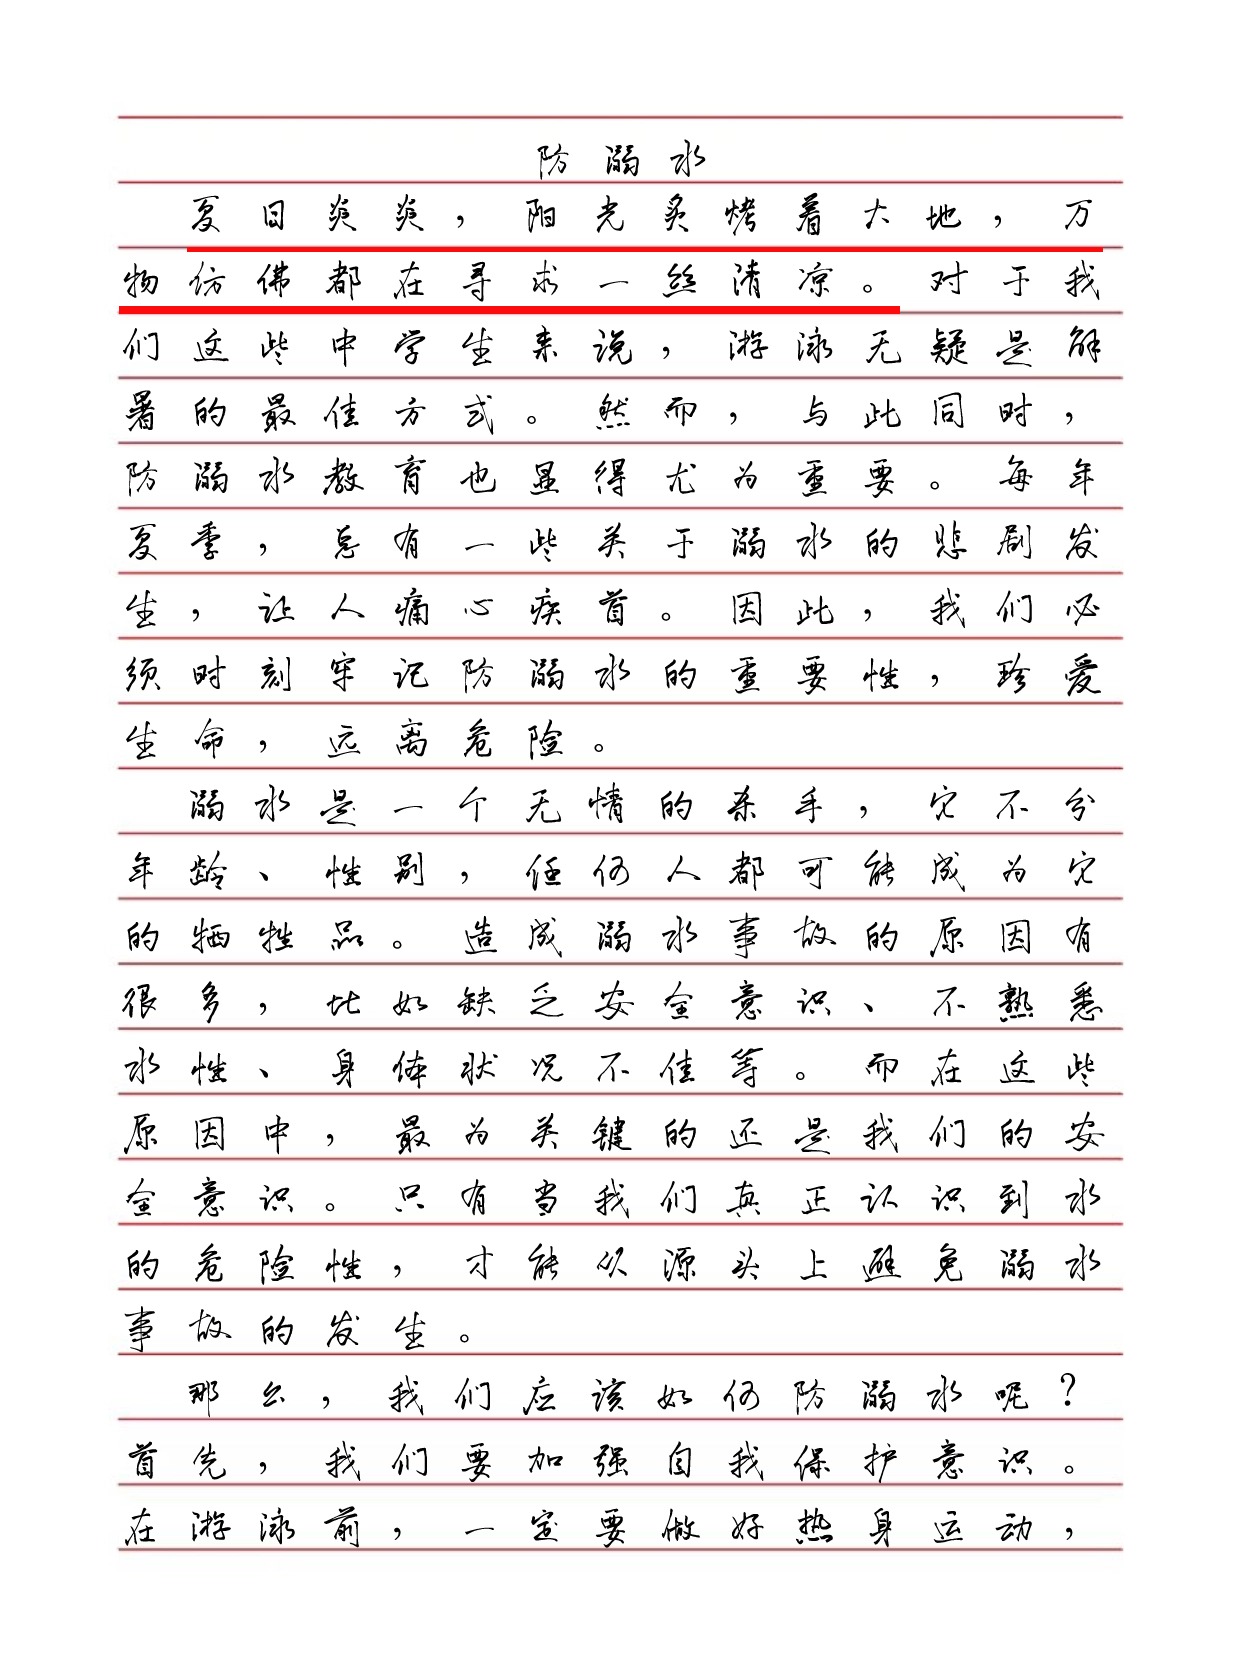 防溺水
夏日炎炎，阳光炙烤着大地，万
物仿佛都在寻求一丝清凉。对于我
们这些中学生来说，游泳无疑是解
暑的最佳方式。然而，与此同时，
防溺水教育也显得尤为重要。每年
夏季，总有一些关于溺水的悲剧发
生，让人痛心疾首。因此，我们必
须时刻牢记防溺水的重要性，珍爱
生命，远离危险。
溺水是一个无情的杀手，它不分
年龄、性别，任何人都可能成为它
的牺牲品。造成溺水事故的原因有
很多，比如缺乏安全意识、不熟悉
水性、身体状况不佳等。而在这些
原因中，最为关键的还是我们的安
全意识。只有当我们真正认识到水
的危险性，才能从源头上避免溺水
事故的发生。
那么，我们应该如何防溺水呢？
首先，我们要加强自我保护意识。
在游泳前，一定要做好热身运动，